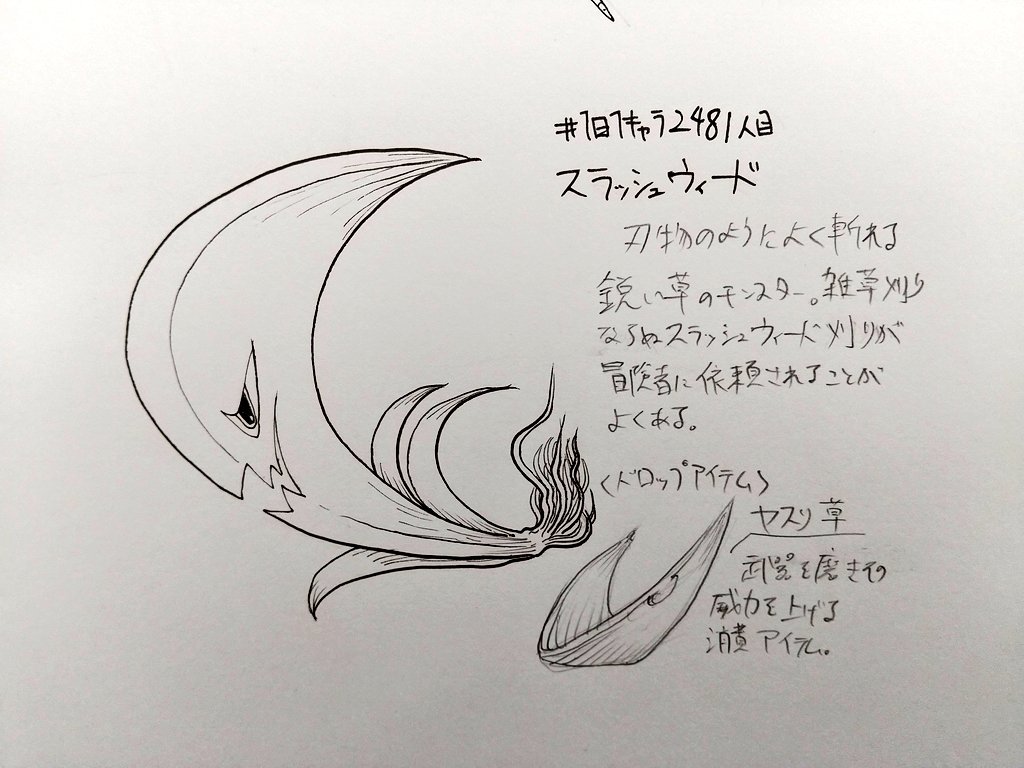 #1日1キャラ2481人目
スラッシュウィード
刃物のようによく斬れる
鋭い草のモンスター。雑草刈り
ならぬスラッシュウィード刈りが
冒険者に依頼されることが
よくある。
〈ドロップアイテム〉
ヤスリ草
武器を磨きその
威力を上げる
消費アイテム。